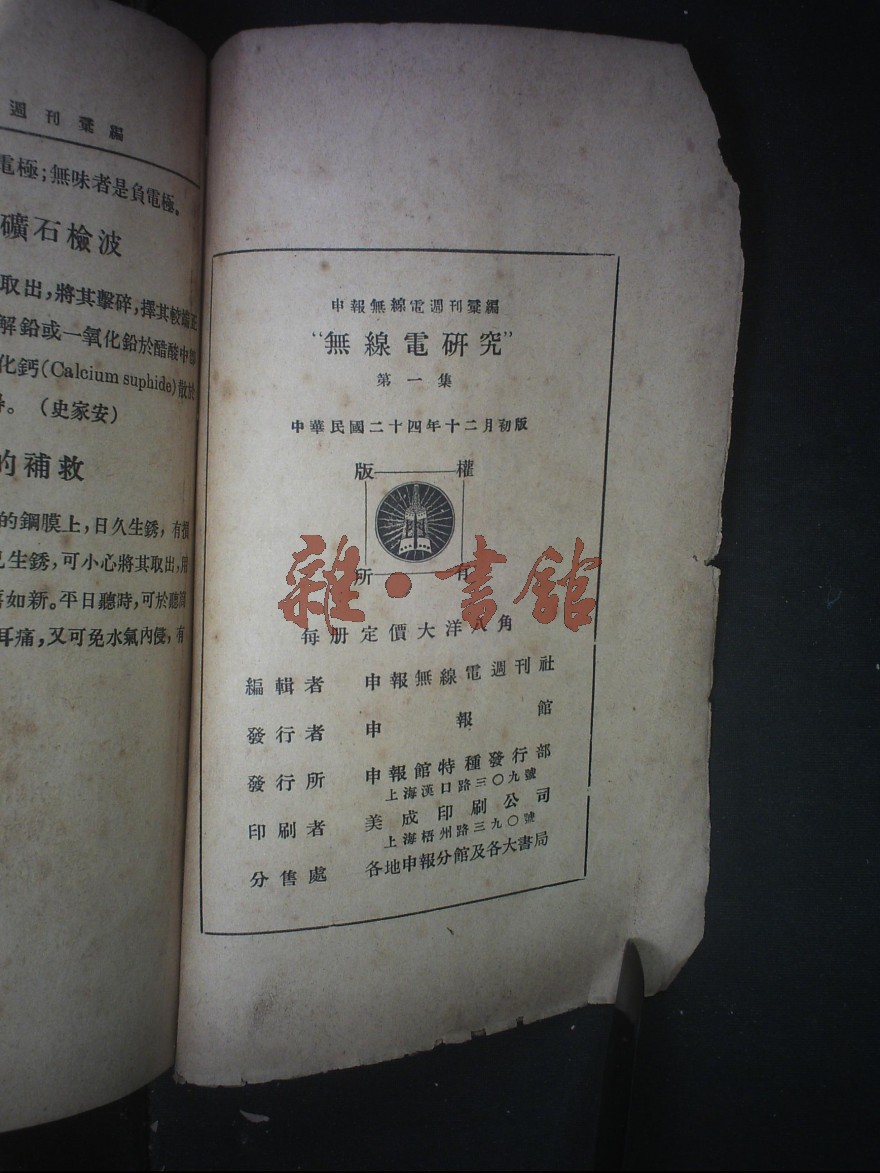 週刊彙編
電極；無味者是負電極。
礦石檢波
取出，將其擊碎，擇其較端正
解鉛或一氧化鉛於醋酸中部
化鈣(Calcium suphide)散於
。（史家安）
的補救
的鋼膜上，日久生銹，有損
生銹，可小心將其取出，用
如新。平日聽時，可於聽筒
耳痛，又可免水氣內侵，有
申報無線電週刊彙編
“無線電研究”
第一集
中華民國二十四年十二月初版
版權
所有
雜·書館
每册定價大洋八角
編輯者 申報無線電週刊社
發行者 申報館
發行所 申報館特種發行部
上海漢口路三〇九號
印刷者 美成印刷公司
上海梧州路三九〇號
分售處 各地申報分館及各大書局